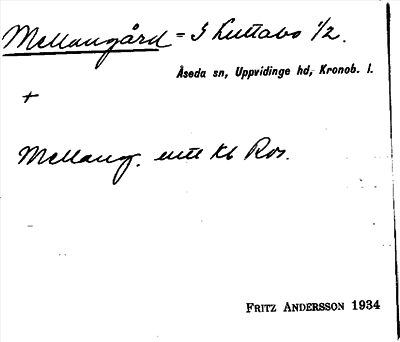 Mellangård = I Luttabo 1/2.
Åseda sn, Uppvidinge hd, Kronob. l.
+
Mellang. enl Kb Ros.
FRITZ ANDERSSON 1934